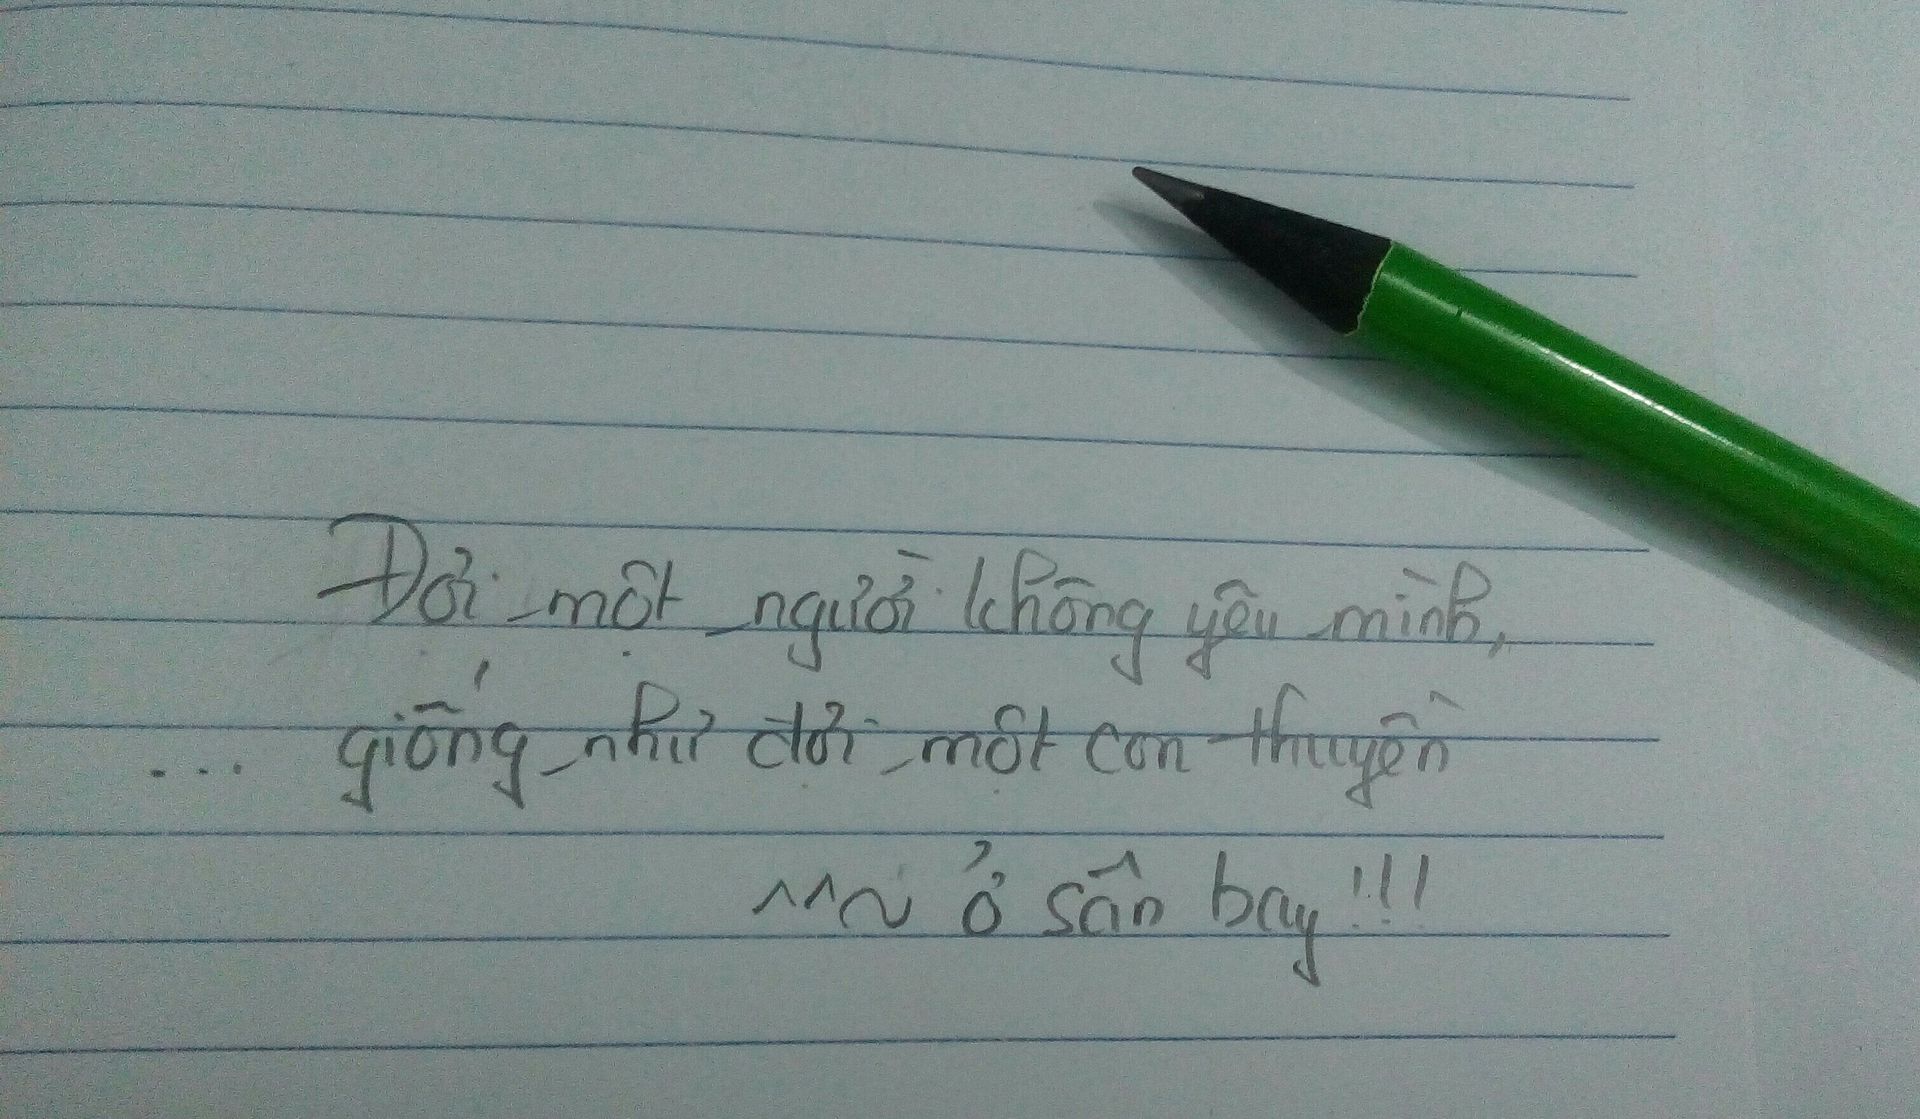 Đợi một người không yêu mình,
... giống như đợi một con thuyền
~~~ ở sân bay!!!